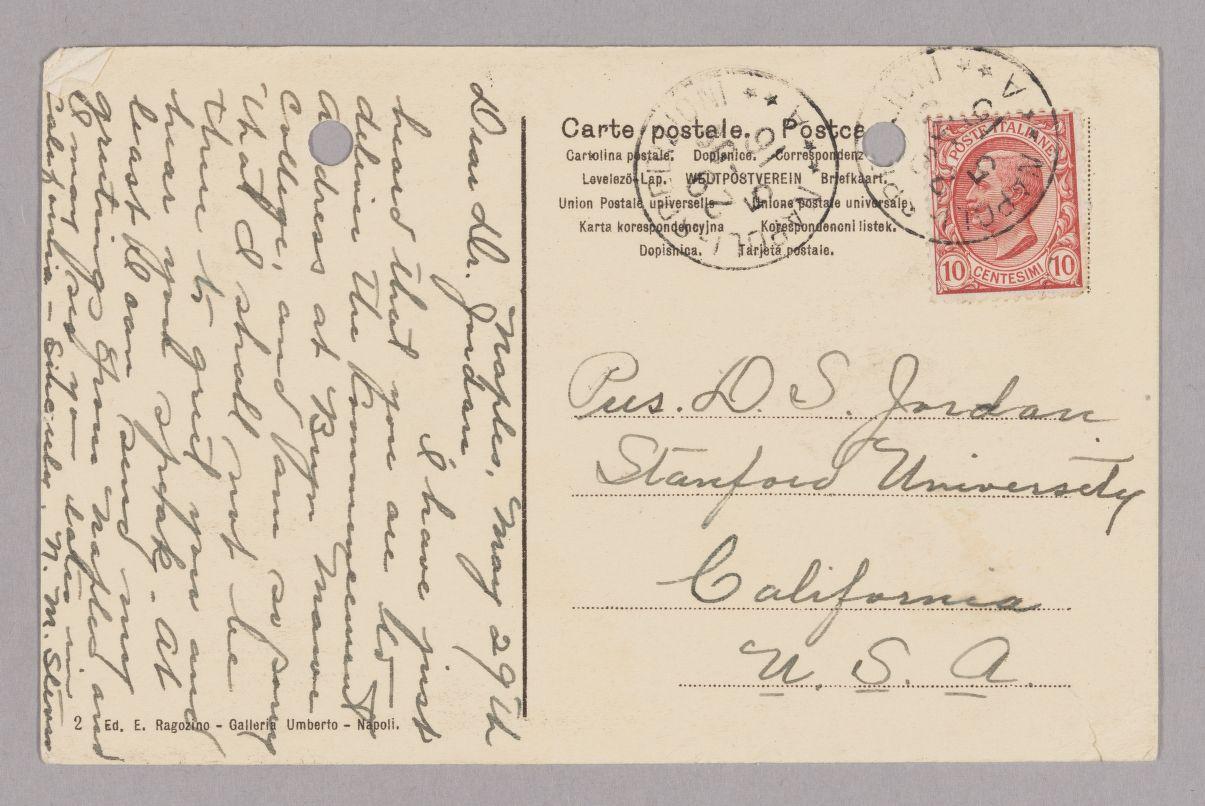 Naples, May 29th
Dear Dr. Jordan
I have just
heard that you are to
deliver the Commencement
address at Bryn Mawr
College, and I am so sorry
that I shall not be
there to greet you and
hear you speak - At
least I can send my
greetings from Naples and
I may see you later in
California - Sincerely, N. M. Stevens
Carte postale. Postca
Cartolina postale. Dopisnice. Correspondenz
Levelező-Lap. WELTPOSTVEREIN Briefkaart.
Union Postale universelle Unione postale universale
Karta korespondencyjna Korespondenoni listek.
Dopisnica. Tarjeta postale.
POSTE ITALIANE
10 CENTESIMI 10
Pres. D. S. Jordan
Stanford University
California
U. S. A.
2 Ed. E. Ragozino - Galleria Umberto - Napoli.